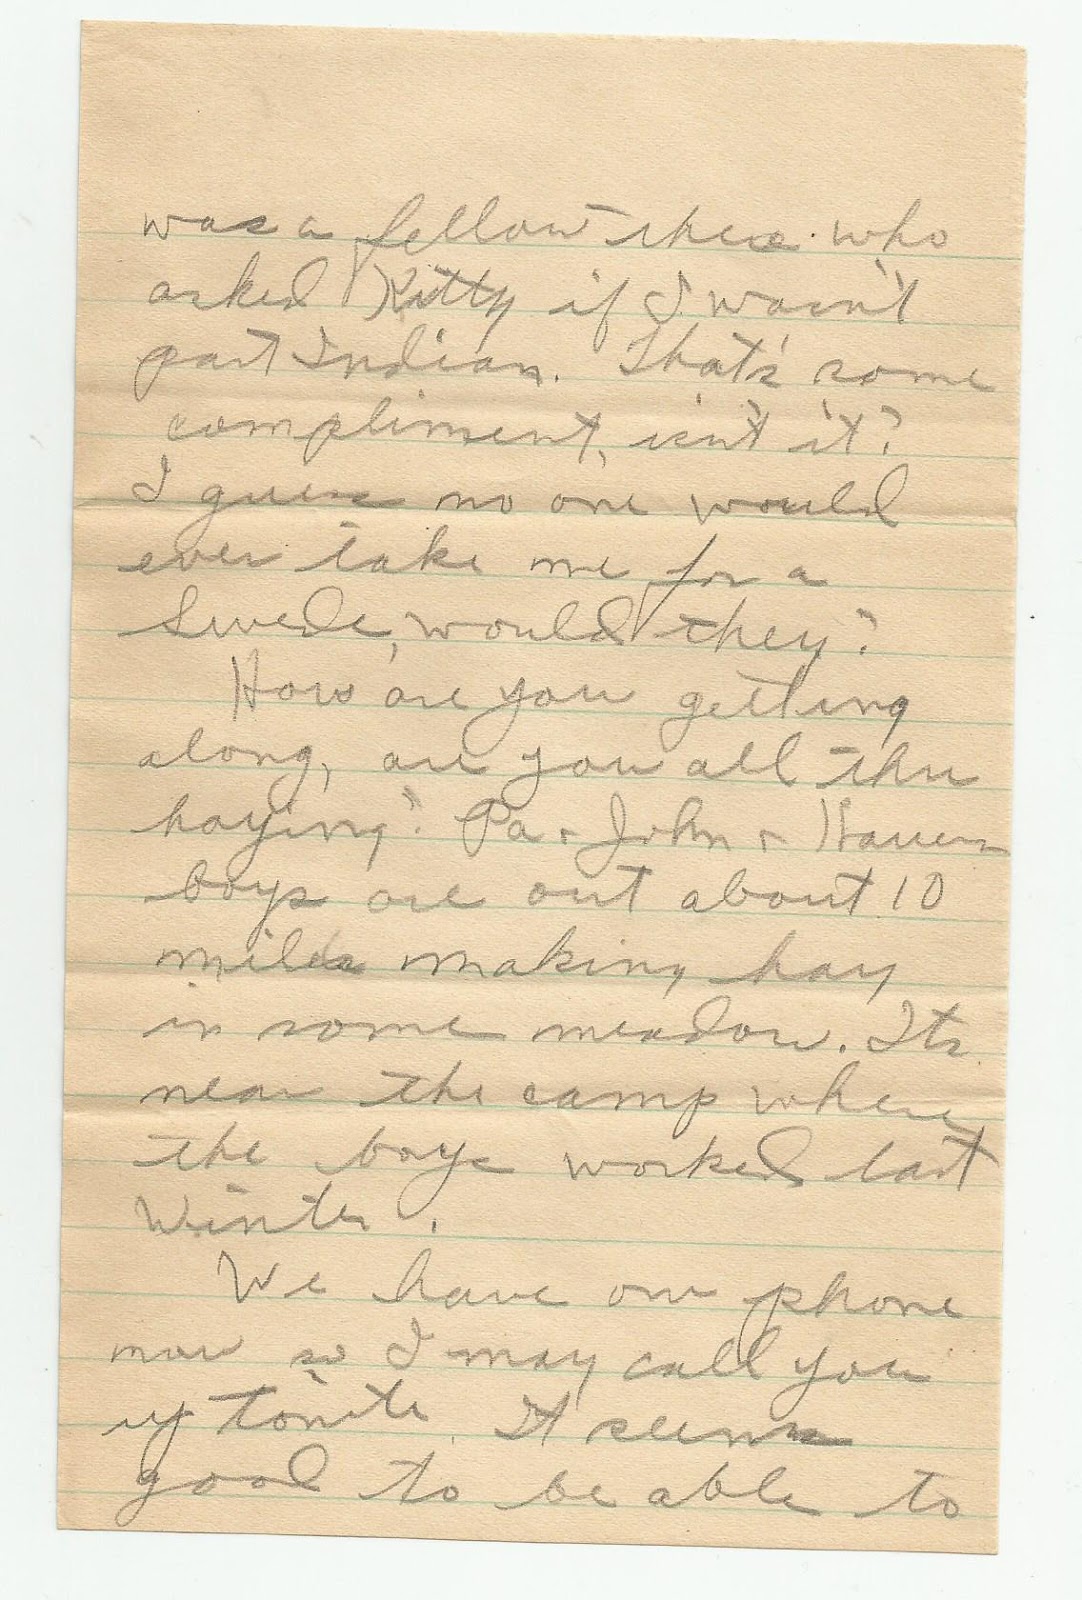 was a fellow there who
asked Kitty if I wasn't
part Indian. That's some
compliment, isn't it?
I guess no one would
ever take me for a
Swede, would they?
How are you getting
along, are you all thru
haying? Pa + John +
boys are out about 10
miles making hay
in some meadow. Its
near the camp where
the boys worked last
Winter.
We have our phone
now so I may call you
up tonite. It seems
good to be able to